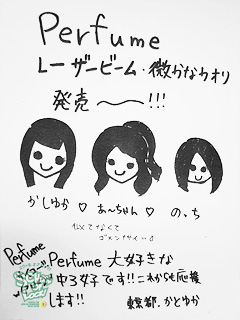 Perfume
レーザービーム・微かなカオリ
発売〜〜!!!
かしゆか♡ あ〜ちゃん♡ の、ち
似てなくて
ゴメンナサイ
Perfume
Perfume 大好きな
中3女子です!!これからも応援
します!! 東京都、かとゆか